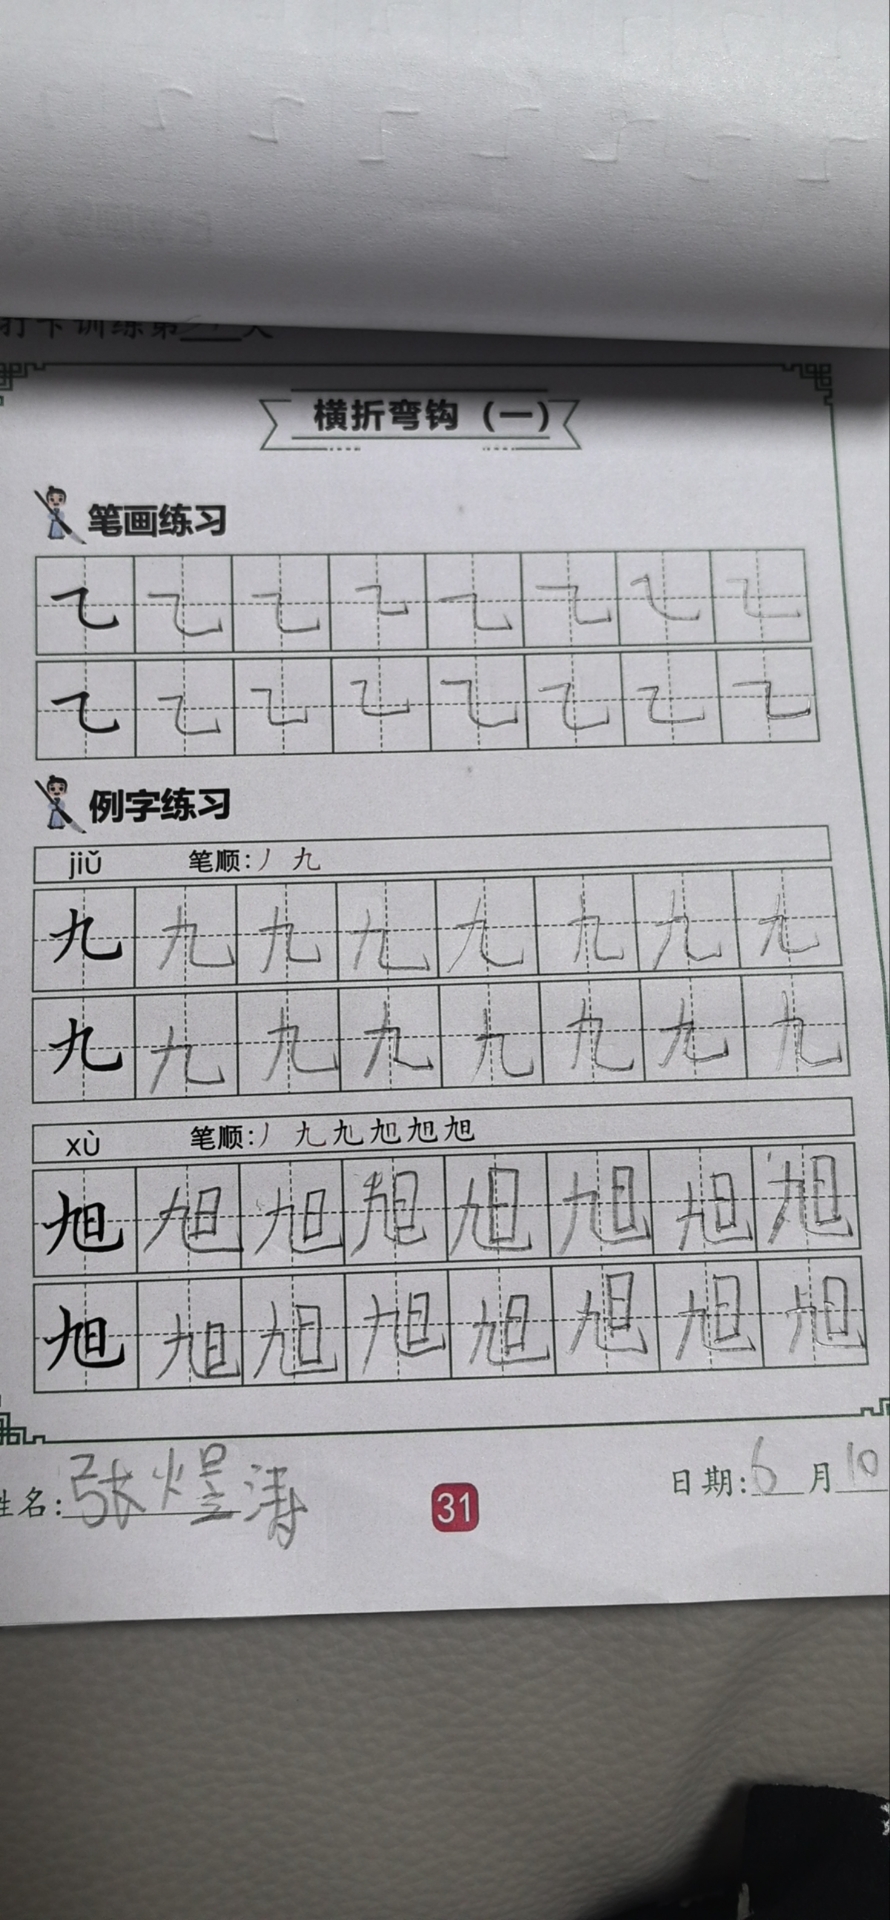 打卡训练第 天
横折弯钩（一）
笔画练习
㇈ ㇈ ㇈ ㇈ ㇈ ㇈ ㇈ ㇈
㇈ ㇈ ㇈ ㇈ ㇈ ㇈ ㇈ ㇈
例字练习
jiǔ 笔顺:丿 九
九 九 九 九 九 九 九 九
九 九 九 九 九 九 九 九
xù 笔顺:丿 九 旭 旭
旭 旭 旭 旭 旭 旭 旭 旭
旭 旭 旭 旭 旭 旭 旭 旭
姓名:张煜涛
31
日期:6月10